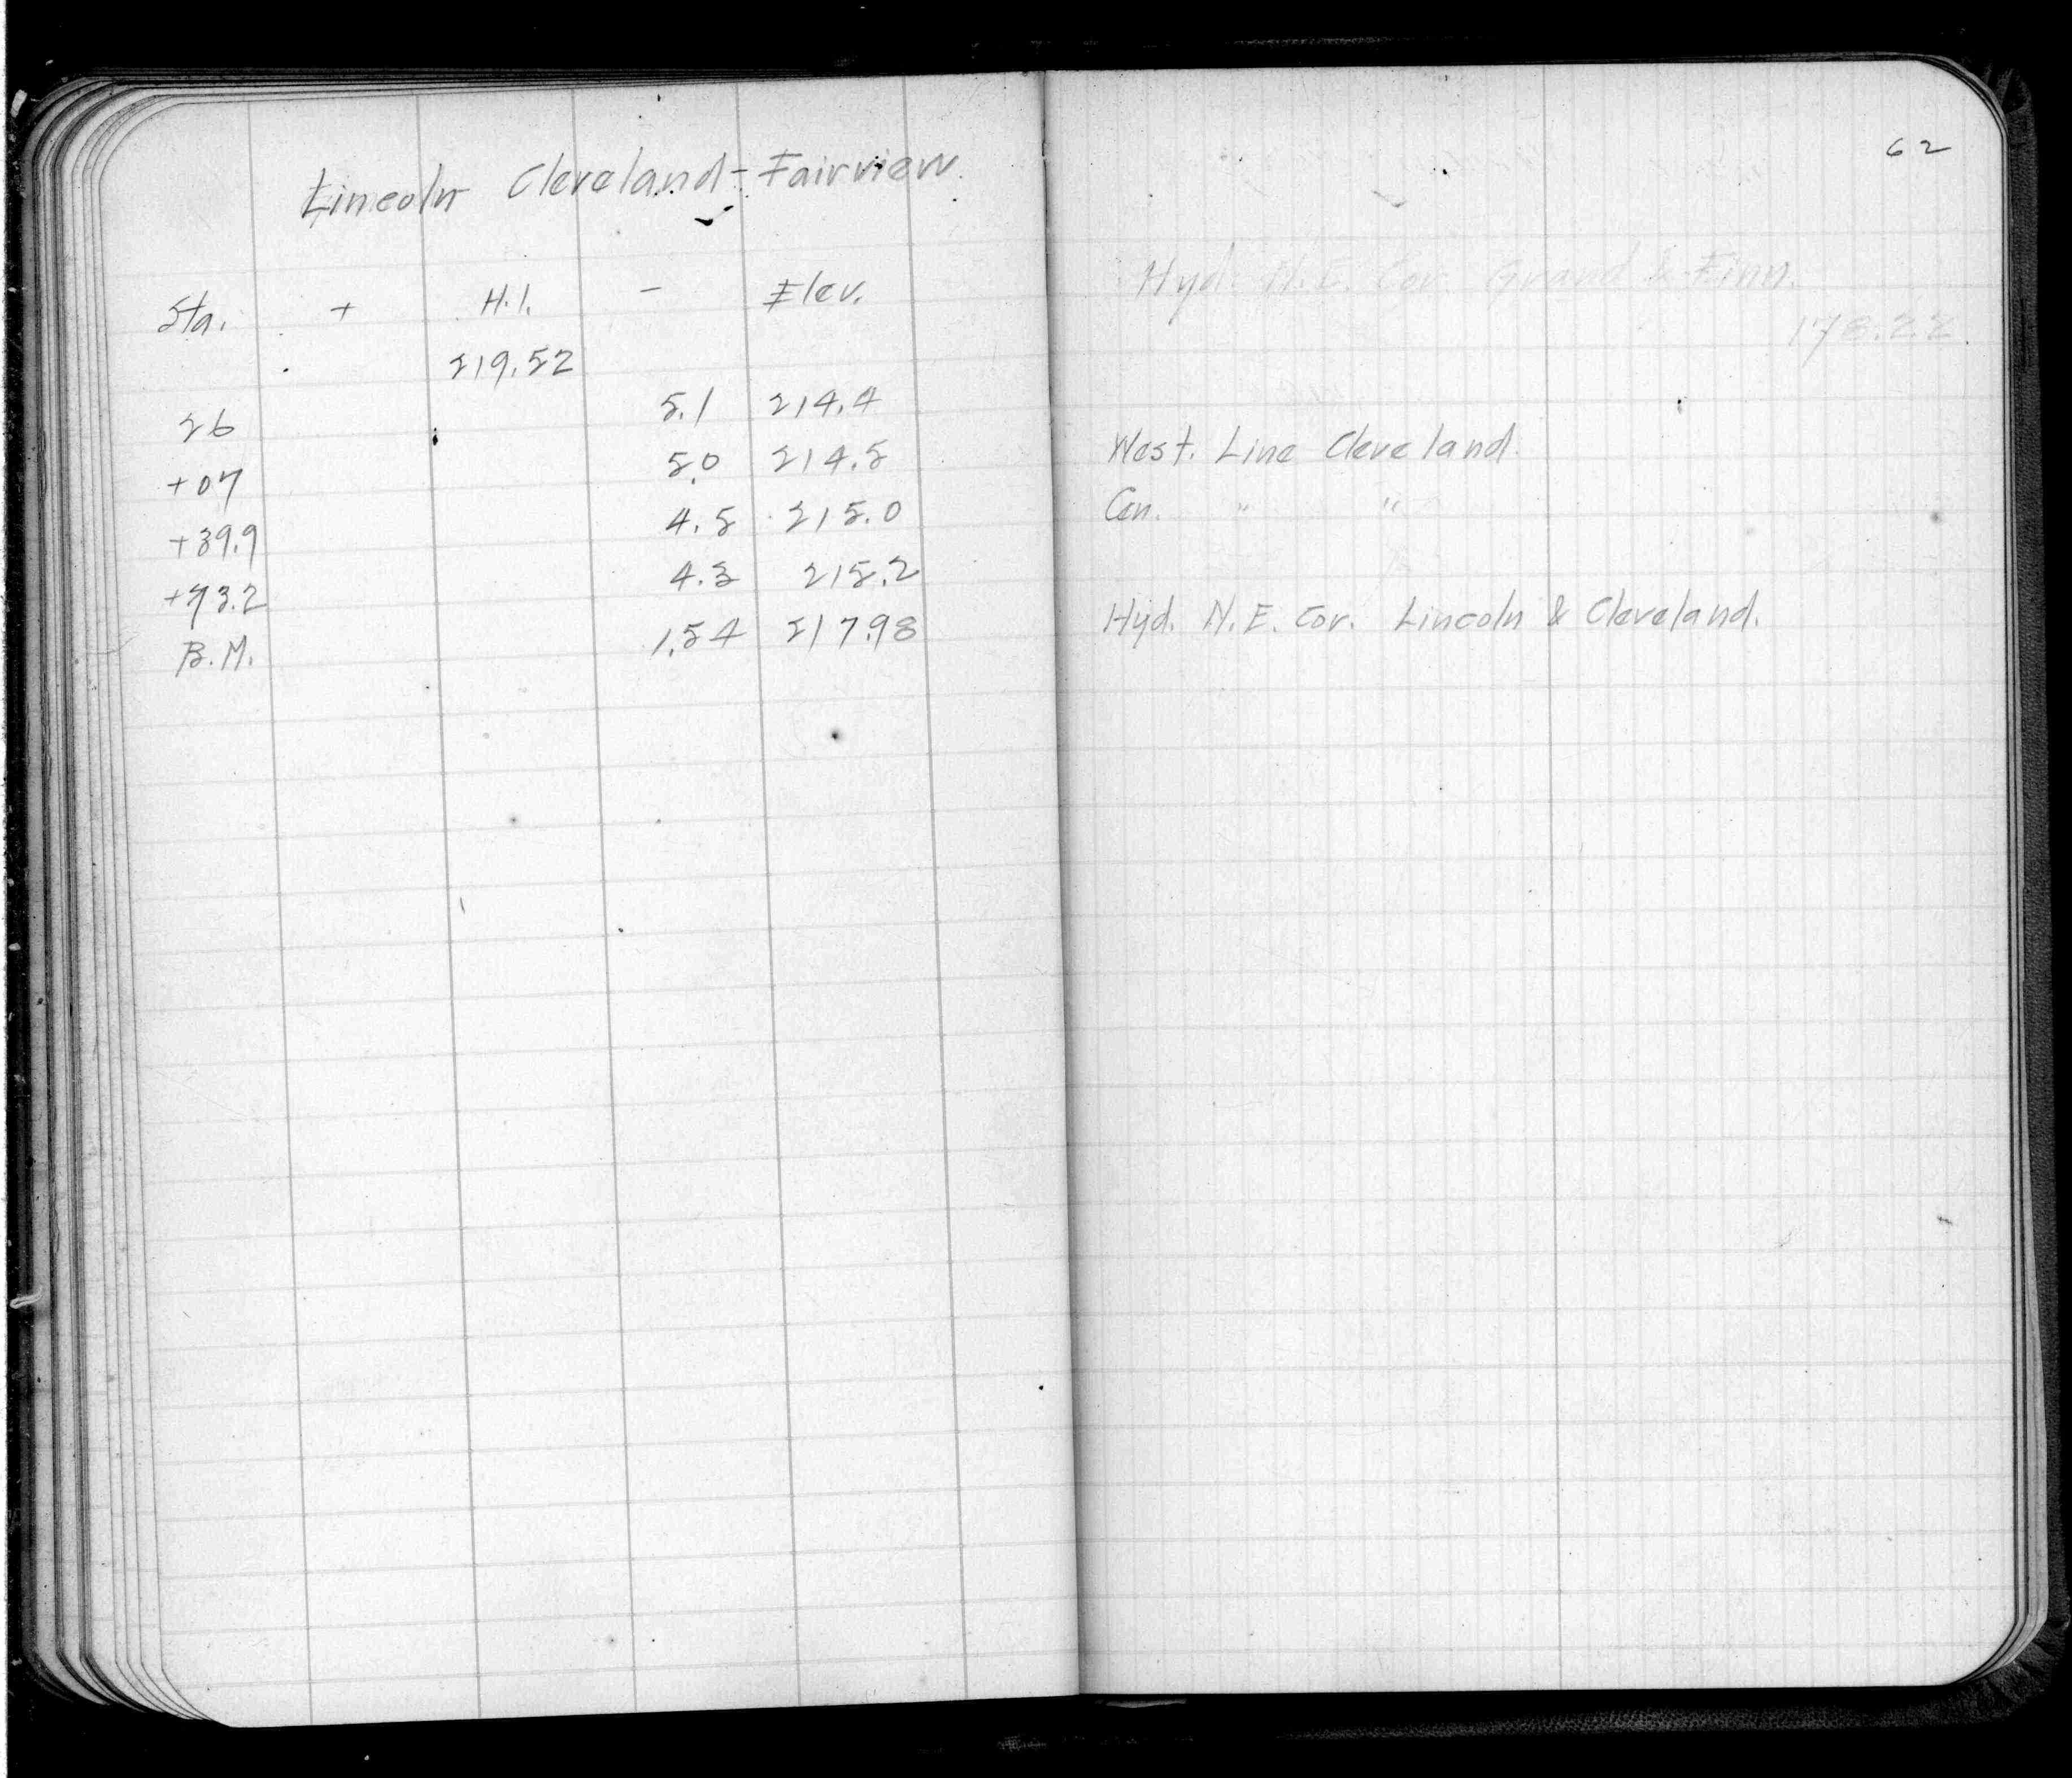 Lincoln Cleveland - Fairview
Sta. + H.I. - Elev.
219.52
26 5.1 214.4
+07 5.0 214.5
+39.9 4.5 215.0
+73.2 4.3 215.2
B.M. 1.54 217.98
62
Hyd. N.E. Cor. Grand & Finn.
178.22
West. Line Cleveland.
Cen. " "
Hyd. N.E. Cor. Lincoln & Cleveland.